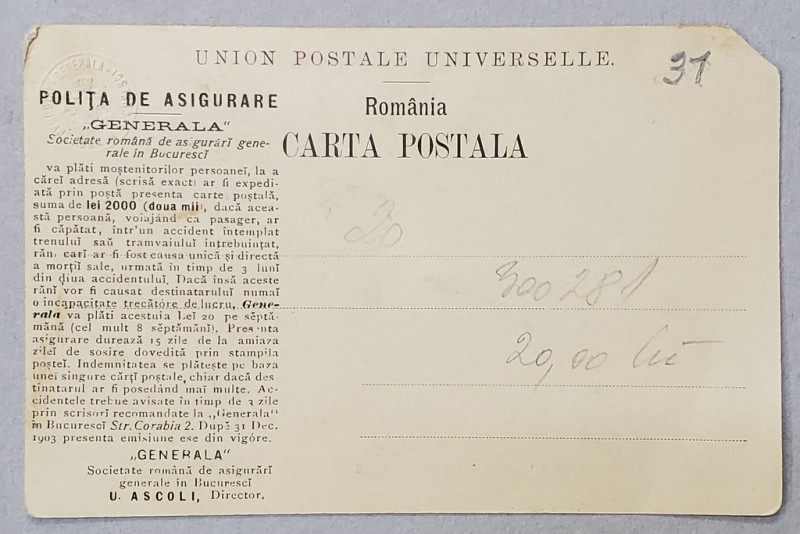 UNION POSTALE UNIVERSELLE.
31
POLIŢA DE ASIGURARE
„GENERALA“
Societate română de asigurărĭ gene-
rale în Bucurescĭ
va plăti moştenitorilor persoaneĭ, la a
căreĭ adresă (scrisă exact) ar fi expedi-
ată prin poştă presenta carte poştală,
suma de lei 2000 (doua mii), dacă acea-
stă persoană, voiajând ca pasager, ar
fi căpătat, într'un accident întemplat
trenuluĭ saŭ tramvaiuluĭ întrebuinţat,
rănĭ carĭ ar fi fost causa unică şi directă
a morţiĭ sale, urmată în timp de 3 lunĭ
din diua accidentuluĭ. Dacă însă aceste
rănĭ vor fi causat destinataruluĭ numaĭ
o incapacitate trecătore de lucru, Gene-
rala va plăti acestuia Leĭ 20 pe săptă-
mână (cel mult 8 săptămânĭ). Presenta
asigurare durează 15 zile de la amiaza
zileĭ de sosire dovedită prin stampila
posteĭ. Indemnitatea se plăteşte pe baza
uneĭ singure cărţĭ poştale, chiar dacă des
tinatarul ar fi posedând maĭ multe. Ac-
cidentele trebue avisate în timp de 3 zile
prin scrisorĭ recomandate la „Generala“
în Bucurescĭ Str. Corabia 2. După 31 Dec.
1903 presenta emisiune ese din vigóre.
„GENERALA“
Societate română de asigurărĭ
generale în Bucurescĭ
U. ASCOLI, Director.
România
CARTA POSTALA
20
300281
20,00 lei